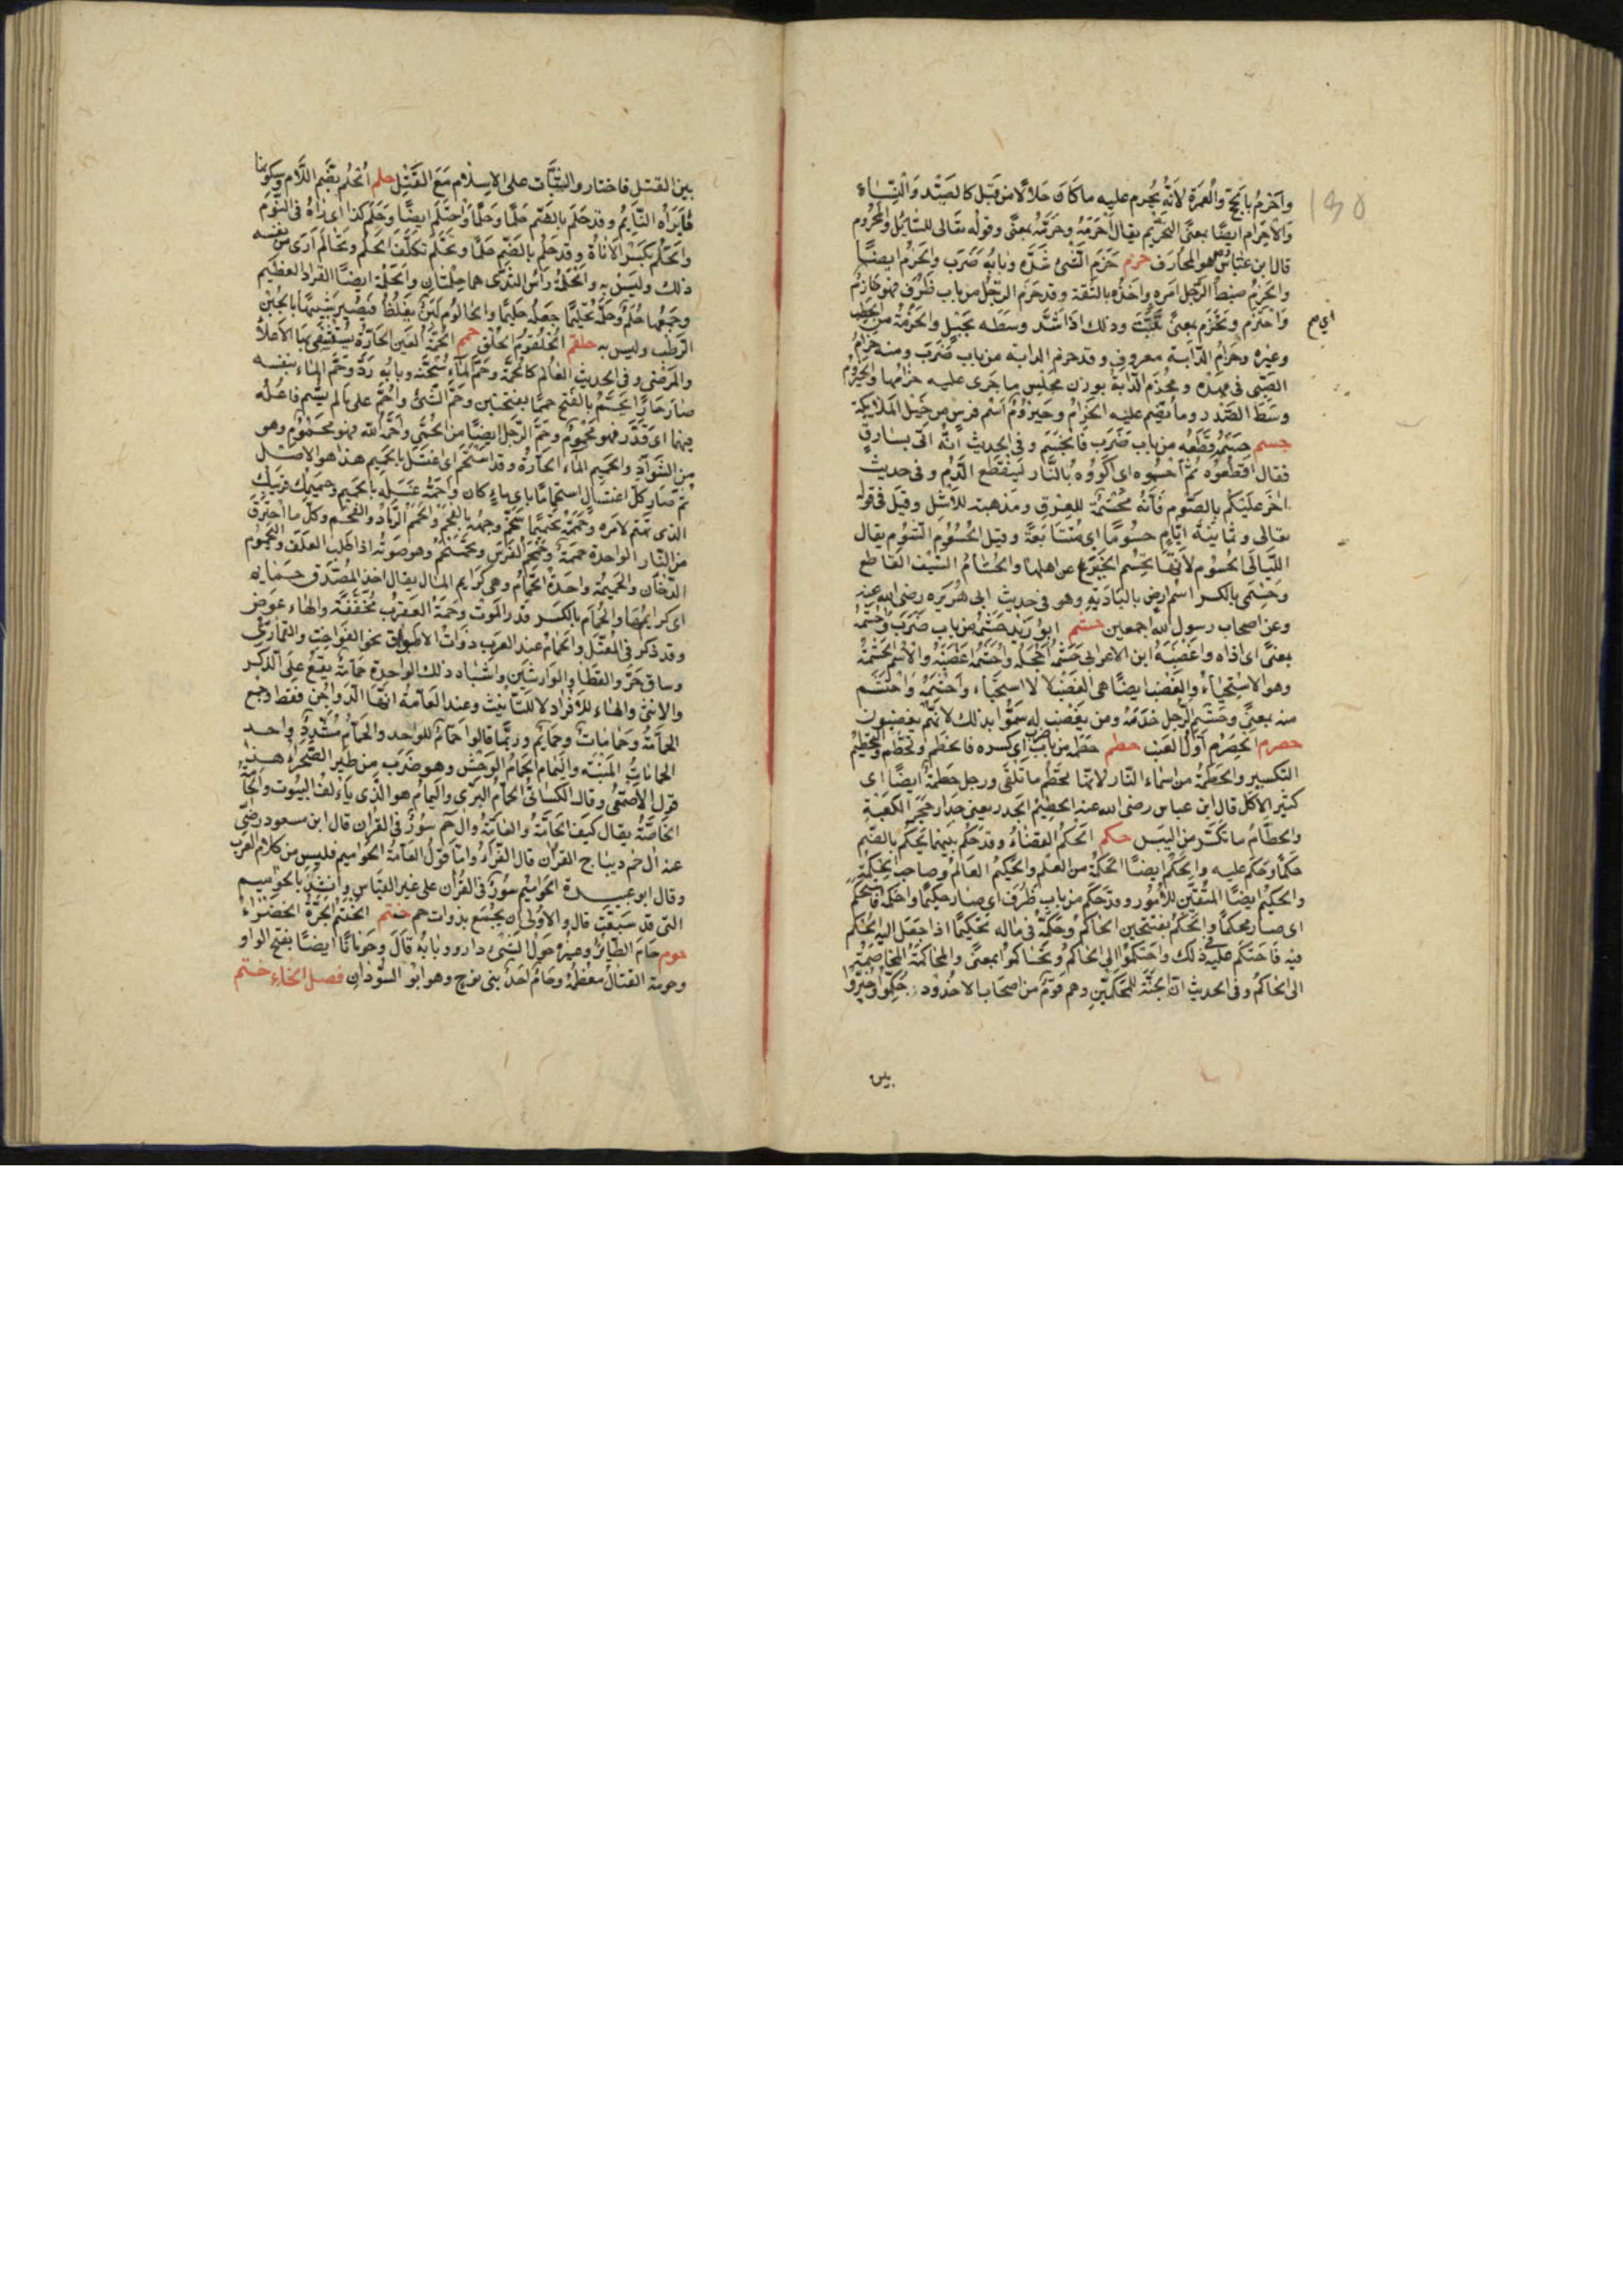 وأحرم بالحج والعمرة لأنه يحرم عليه ما كان حلالا من قبل كالصيد والنساء
والاحرام ايضا بمعنى التحريم يقال أحرمه وحرمه بمعنى وقوله تعالى للسائل والمحروم
قال ابن عباس هو المحارف حزم حزم الشئ شده وبابه ضرب والحزم ايضا
والحزم ضبط الرجل امره واخذه بالثقة وقد حزم الرجل من باب ظرف فهو حازم
واحتزم وتحزم بمعنى تلبب وذلك اذا شد وسطه بحبل والحزمة من الحطب
وغيره وحزام الدابة معروف وقد حزم الدابة من باب ضرب ومنه حزام
الصبى فى مهده ومحزم الدابة بوزن مجلس ما جرى عليه حزامها والحيزوم
وسط الصدر وما يضم عليه الحزام وحيزوم اسم فرس من خيل الملايكة
حسم حسمه قطعه من باب ضرب فانحسم وفى الحديث أنه اتى بسارق
فقال اقطعوه ثم احسموه اى اكووه بالنار لينقطع الدم وفى حديث
اخر عليكم بالصوم فأنه محسمة للعرق ومذهبة للأشر وقيل فى قوله
تعالى وثمانية ايام حسوما اى متتابعة وقيل الحسوم الشوم يقال
الليالى الحسوم لأنها تحسم الخير عن اهلها والحسام السيف القاطع
وحسمى بالكسر اسم ارض بالبادية وهو فى حديث ابى هريره رضى الله عنه
وعن اصحاب رسول الله اجمعين حشم ابو زيد حشمه من باب ضرب واحشمه
بمعنى اى اذاه واغضبه ابن الاعرابى حشمه اخجله واحشمه اغضبه والاسم الحشمة
وهو الاستحياء والغضب ايضا هى الغضب لا الاستحياء واحشمه واحتشم
منه بمعنى وحشم الرجل خدمه ومن يغضب له سموا بذلك لانهم يغضبون
حصرم الحصرم اول العنب حطم حطمه من باب ضرب اى كسره فانحطم وتحطم والتحطيم
التكسير والحطمة من اسماء النار لانها تحطم ما تلقى ورجل حطمة ايضا اى
كثير الاكل قال ابن عباس رضى الله عنه الحطيم الجدر يعنى جدار حجر الكعبة
والحطام ما تكسر من اليبس حكم الحكم القضاء وقد حكم بينهما يحكم بالضم
حكما وحكم عليه والحكم ايضا الحكمة من العلم والحكيم العالم وصاحب الحكمة
والحكيم ايضا المتقن للأمور وقد حكم من باب ظرف اى صار حكيما واحكمه فاستحكم
اى صار محكما والحكم بفتحتين الحاكم وحكمه فى ماله تحكيما اذا جعل اليه الحكم
فيه فاحتكم عليه فى ذلك واحتكموا الى الحاكم وتحاكموا بمعنى والمحاكمة المخاصمة
الى الحاكم وفى الحديث ان الجنة للمحكمين وهم قوم من اصحاب الاخدود حكموا وخيروا
بين
بين القتل فاختاروا الثبات على الاسلام مع القتل حلم الحلم بضم اللام وسكونها
ما يراه النايم وقد حلم بالضم حلما وحلما واحتلم ايضا وحلم كذا اى راه فى النوم
والحلم بكسر الاناة وقد حلم بالضم حلما وتحلم تكلف الحلم وتحالم أرى من نفسه
ذلك وليس به والحلمة رأس الثدى هما حلمتان والحلمة ايضا القراد العظيم
وجمعها حلم وحلمه تحليما جعله حليما والحالوم لبن يغلظ فيصير شبيها بالجبن
الرطب وليس به حلقم الحلقوم الحلق حمم الحمة العين الحارة يستشفى بها الاعلاء
والمرضى وفى الحديث العالم كالحمة وحم الماء سخنه وبابه رد وحم الماء بنفسه
صار حارا يحم بالفتح حمما بفتحتين وحم الشئ واحم على ما لم يسم فاعله
فيهما اى قدر فهو محموم وحم الرجل ايضا من الحمى واحمه الله فهو محموم وهو
من الشواذ والحميم الماء الحارة وقد استحم اى اغتسل بالحميم هذا هو الاصل
ثم صار كل اغتسال استحماما باى ماء كان واحمه غسله بالحميم وحميمك قريبك
الذى تهتم لامره وحممه تحميما سخم وجهه بالفحم والحمم الرماد والفحم وكل ما احترق
من النار الواحدة حممة وحمحم الفرس وتحمحم وهو صوته اذا طلب العلف واليحموم
الدخان والحميمة واحدة الحمام وهى كرايم المال يقال اخذ المصدق حمايمه
اى كرايمها والحمام بالكسر قدر الموت وحمة العقرب مخففة والهاء عوض
وقد ذكر فى المعتل والحمام عند العرب ذوات الاطواق نحو الفواخت والقمارى
وساق حر والقطا والوارشين واشباه ذلك الواحدة حمامة يقع على الذكر
والانثى والهاء للأفراد لا للتانيث وعند العامة انها الدواجن فقط وجمع
الحمامة وحمامات وحمايم وربما قالوا حمام للواحد والحمام مشدد واحد
الحمامات المبنية واليمام الحمام الوحش وهو ضرب من طير الصحراء هذا
قول الاصمعى وقال الكسائى الحمام البرى واليمام هو الذى يألف البيوت والحامة
الخاصة يقال كيف الحامة والعامة وال حم سور فى القران قال ابن مسعود رضى
عنه ال حم ديباج القران قال الفراء واما قول العامة الحواميم فليس من كلام العرب
وقال ابو عبيدة الحواميم سور فى القران على غير القياس وانشد بالحواميم
التى قد سبعت قال والاولى ان يجمع بذوات حم حنتم الحنتم الجرة الخضراء
حوم حام الطائر وغيره حول الشئ دار وبابه قال وحومانا ايضا بفتح الواو
وحومة القتال معظمه وحام احد بنى نوح وهو ابو السودان فصل الخاء ختم